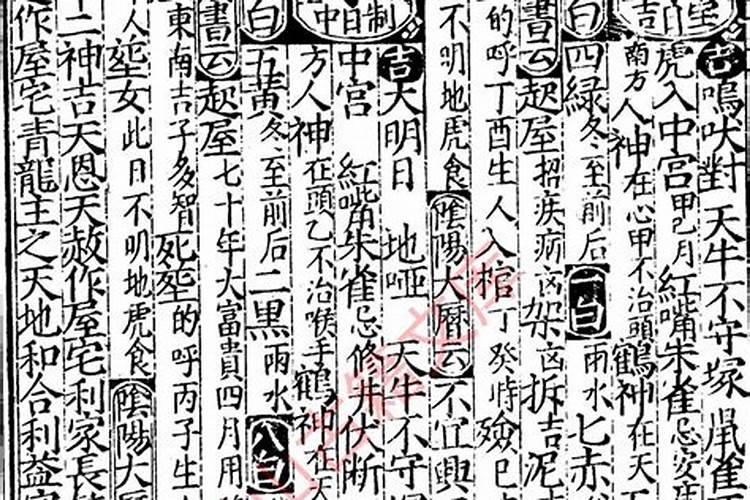 吉 嗚吠對 天牛不守塚 鼠雀
虎入中宮 甲己月 紅嘴朱雀忌安
室白吉 南方 人神在心甲不治頭 鶴神在天
白四緑 冬至前后 一白 雨水七赤
書云 起屋招疾病 凶 架凶 拆吉 泥
的呼丁酉生人 入棺丁癸時 殮巳
不明地虎食 陰陽大曆云 不宜興
吉 大明日 地啞 天牛不守
中宮 紅嘴朱雀忌修井伏断
制日中 方 人神在頭乙不治喉手 鶴神在天
白五黃 冬至前后二黒 雨水八白
書云 起屋七十年大富貴四月用
東南吉 子多智 死𡋯的呼丙子生
人𡋯女此日不明地虎食 陰陽大
二神吉天恩天赦作屋宅利家長
作屋宅青龍主之天地和合利益